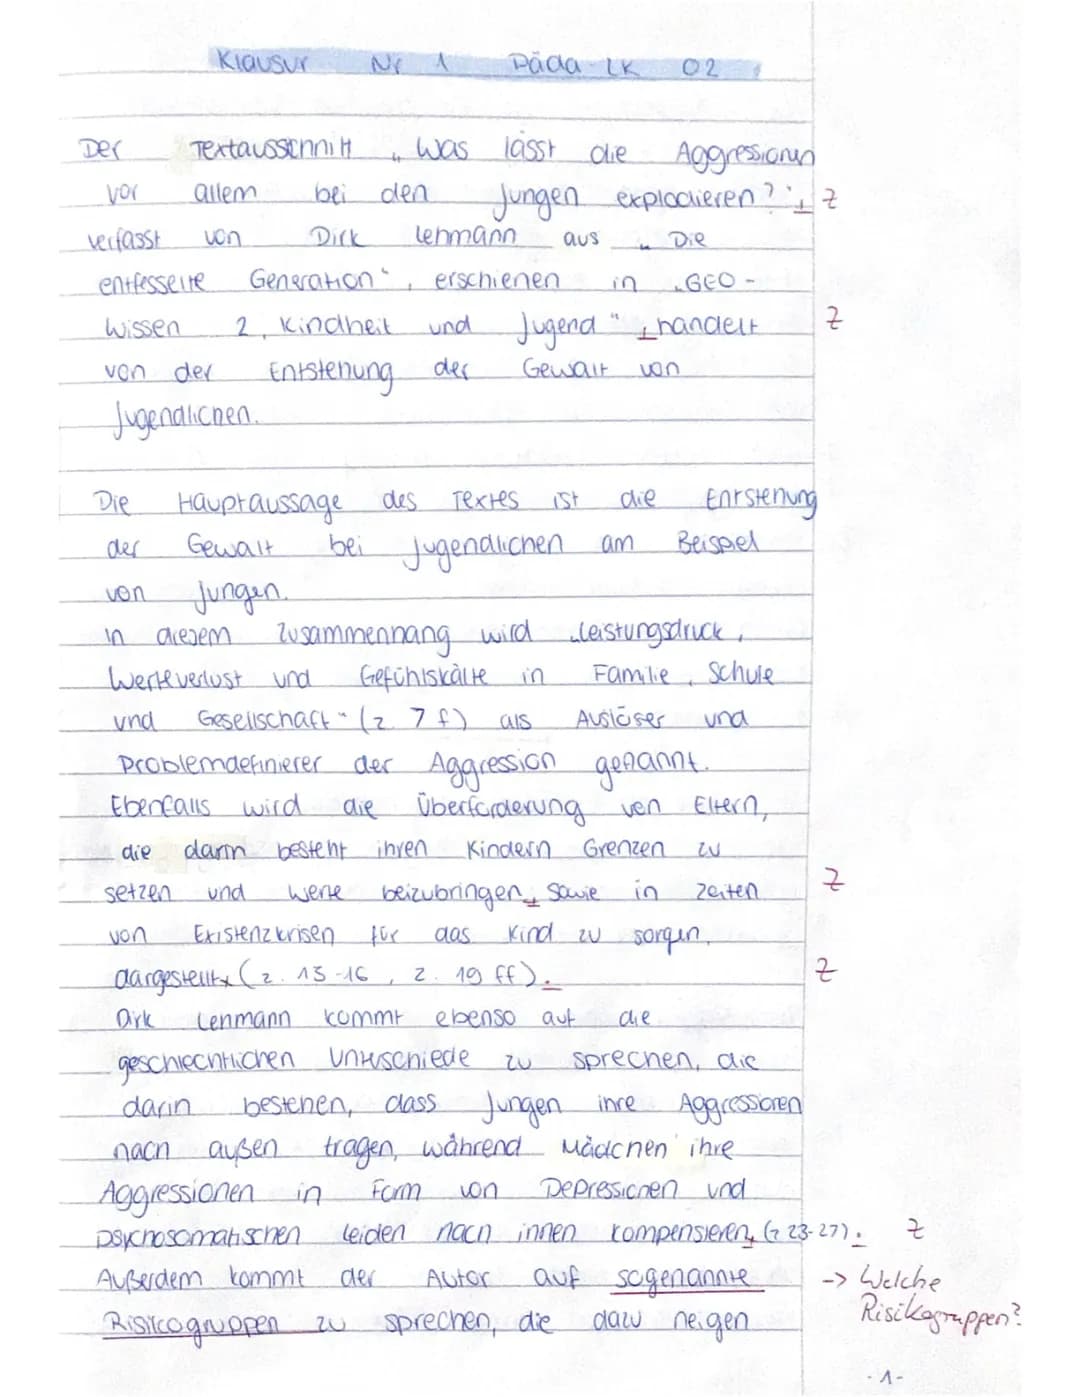 Klausur Nr 1 Päda-LK 02
Der Textausschnitt „Was lässt die Aggressionen
vor allem bei den Jungen explodieren?“, Z
verfasst von Dirk Lehmann aus „Die
entfesselte Generation“, erschienen in „GEO-
Wissen 2, Kindheit und Jugend“, handelt Z
von der Entstehung der Gewalt von
Jugendlichen.
Die Hauptaussage des Textes ist die Entstehung
der Gewalt bei Jugendlichen am Beispiel
von Jungen.
In diesem Zusammenhang wird „Leistungsdruck,
Werteverlust und Gefühlskälte in Familie, Schule
und Gesellschaft“ (Z. 7 f) als Auslöser und
Problemdefinierer der Aggression genannt.
Ebenfalls wird die Überforderung von Eltern,
die darin besteht ihren Kindern Grenzen zu
setzen und Werte beizubringen, sowie in Zeiten Z
von Existenzkrisen für das Kind zu sorgen,
dargestellt (Z. 13-16, Z. 19 ff). Z
Dirk Lehmann kommt ebenso auf die
geschlechtlichen Unterschiede zu sprechen, die
darin bestehen, dass Jungen ihre Aggressionen
nach außen tragen, während Mädchen ihre
Aggressionen in Form von Depressionen und
psychosomatischen Leiden nach innen kompensieren (Z 23-27). Z
Außerdem kommt der Autor auf sogenannte -> Welche
Risikogruppen zu sprechen, die dazu neigen Risikogruppen?
-1-